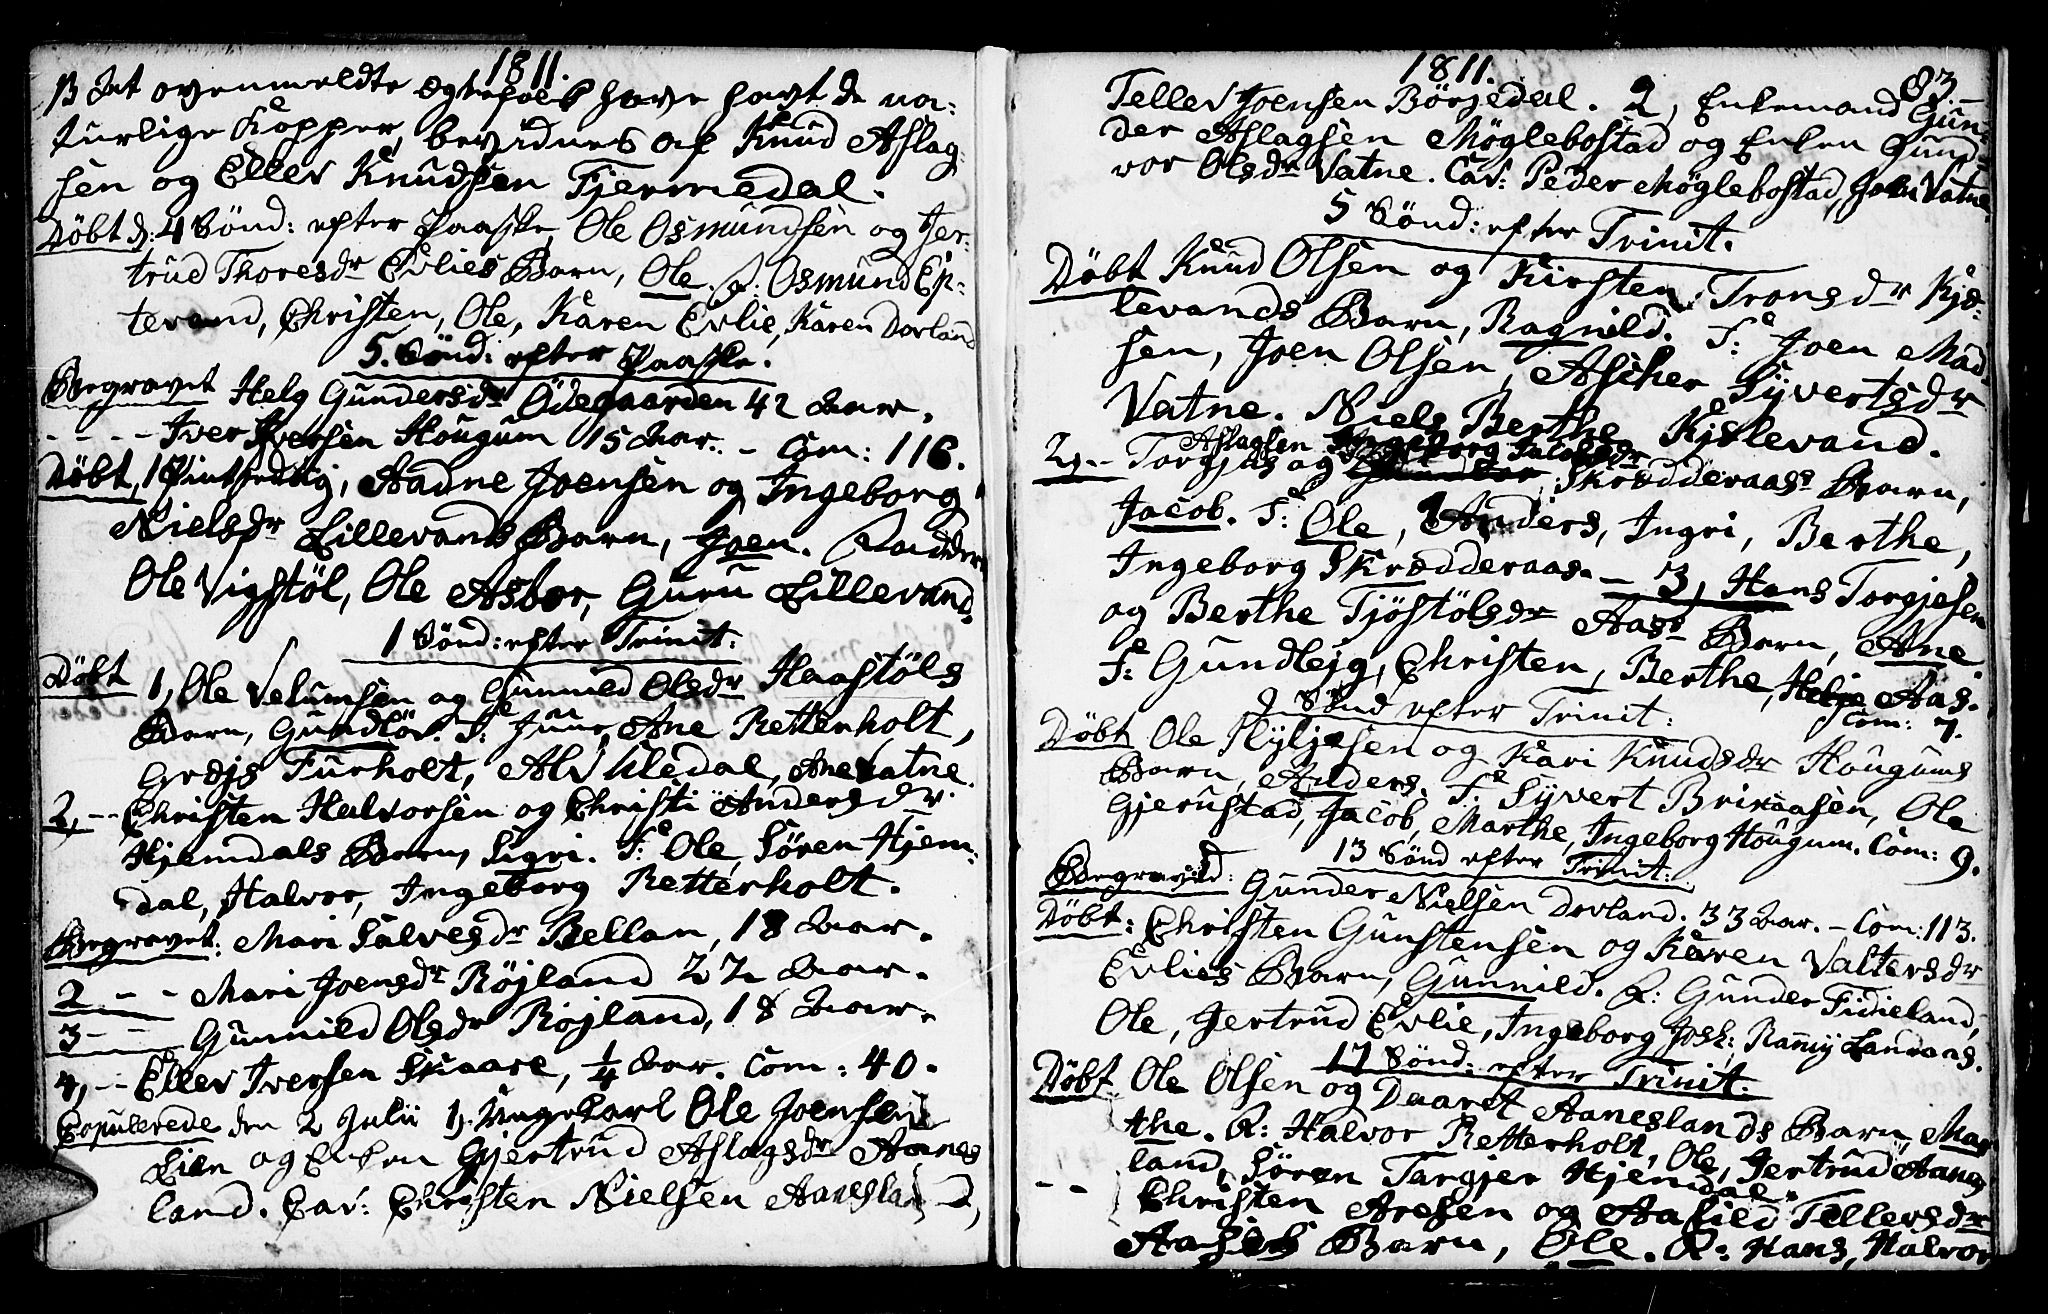 1811.
At ovenmeldte Ægtefolk have havt de na-
turlige Kopper, bevidnes af Knud Aslag-
sen og Ellev Knudsen Fjermedal.
Döbt d: 4 Sönd: efter Paaske, Ole Osmundsen og Jer-
trud Thoresdr Evlies Barn, Ole. F: Osmund Ep-
tevand, Christen, Ole, Karen Evlie, Karen Dovland
5. Sönd: efter Paaske.
Begravet Helg Gundersdr Ödegaarden 42 Aar.
- - - - Iver Iversen Hougum 15 Aar. - Com: 116.
Döbt, 1 Pintsedag, Aadne Joensen og Ingeborg
Nielsdr Lillevands Barn, Joen. Fadder
Ole Vigstöl, Ole Asbor, Guru Lillevand.
1 Sönd: efter Trinit:
Döbt 1, Ole Velumsen og Gunnild Olsdr Haastöls
Barn, Gundlöv. F: Juul, Ane Retterholt,
Græjs Furholt, Alv Uledal, Ane Vatne.
2, -- Christen Halvorsen og Christi Andersdr
Hjemdals Barn, Sigri. F: Ole, Sören Hjem-
dal, Halvor, Ingeborg Retterholt.
Begravet: Mari Salvesdr Bellan, 18 Aar.
2 - - Mari Joensdr Röjland 22 Aar.
3 - - Gunnild Olsdr Röjland, 18 Aar.
4, -- Ellev Iversen Skaare, 1/4 Aar. Com: 40.
Copulerede den 2 Julii 1, Ungekarl Ole Joensen
Lien og Enken Gjertrud Aslagsdr Aanes
land. Cav: Christen Nielsen Aanesland,
1811. 83.
Tellev Joensen Börjedal. 2, Enkemand Gun-
der Aslagsen Möglebostad og Enken Gund-
vor Olsdr Vatne. Cav: Peder Möglebostad, Joen Vatne.
5 Sönd: efter Trinit.
Döbt Knud Olsen og Kirsten Tronsdr Kjæ-
levands Barn, Ragnild. F: Joen Mad-
sen, Joen Olsen, Ascher Syvertsdr
Vatne. Niels, Berthe Kjælevand.
2, -- Torgjus Aslagsen og Ingeborg Jacobsdr Skrædderaas Barn,
Jacob. F: Ole, Anders, Ingri, Berthe,
Ingeborg Skrædderaas. - 3, Hans Torgjesen
og Berthe Tjöstölsdr Aas Barn, Ane
F: Gundlejg, Christen, Berthe, Helje Aas.
9 Sönd efter Trinit: Com: 7.
Döbt Ole Kyljesen og Kari Knudsdr Hougums
Barn, Anders. F: Syvert Brivaasen, Ole
Gjerustad, Jacob, Marthe, Ingeborg Hougum. Com: 9.
13 Sönd efter Trinit:
Begravid: Gunder Nielsen Dovland. 33 Aar. - Com: 113.
Döbt: Christen Gunstensen og Karen Valtersdr
Evlies Barn, Gunnild. F: Gunder Fidieland,
Ole, Jertrud Evlie, Ingeborg Josk: Ramiy Lanvaas.
17 Sönd: efter Trinit:
Döbt Ole Olsen og Daaret Aaneslands Barn, Mar
the. F: Halvor Retterholt, Ole, Jertrud Aanes
land, Sören Targjer Hjemdal.
- - Christen Aresen og Aasild Tellevsdr
Aasens Barn, Ole. F: Hans, Halvor